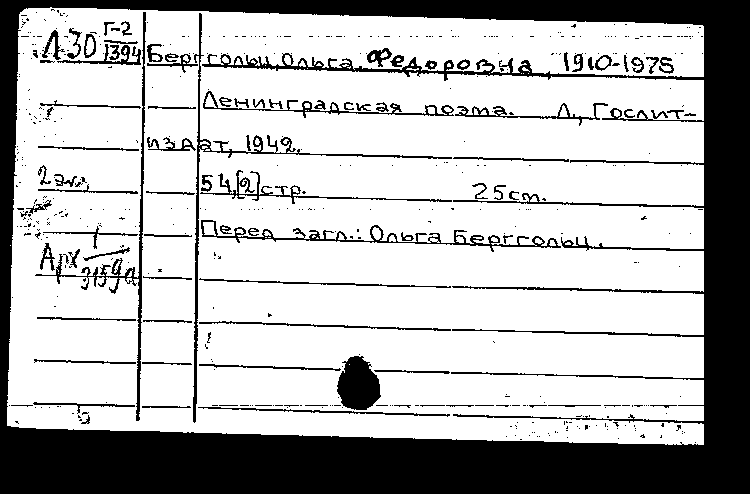 Л30 Г-2
1394
Берггольц, Ольга Федоровна, 1910-1975
Ленинградская поэма. Л., Гослит-
издат, 1942.
2 экз.
54,[2] стр. 25 cm.
Перед загл.: Ольга Берггольц.
Арх 1
3159а